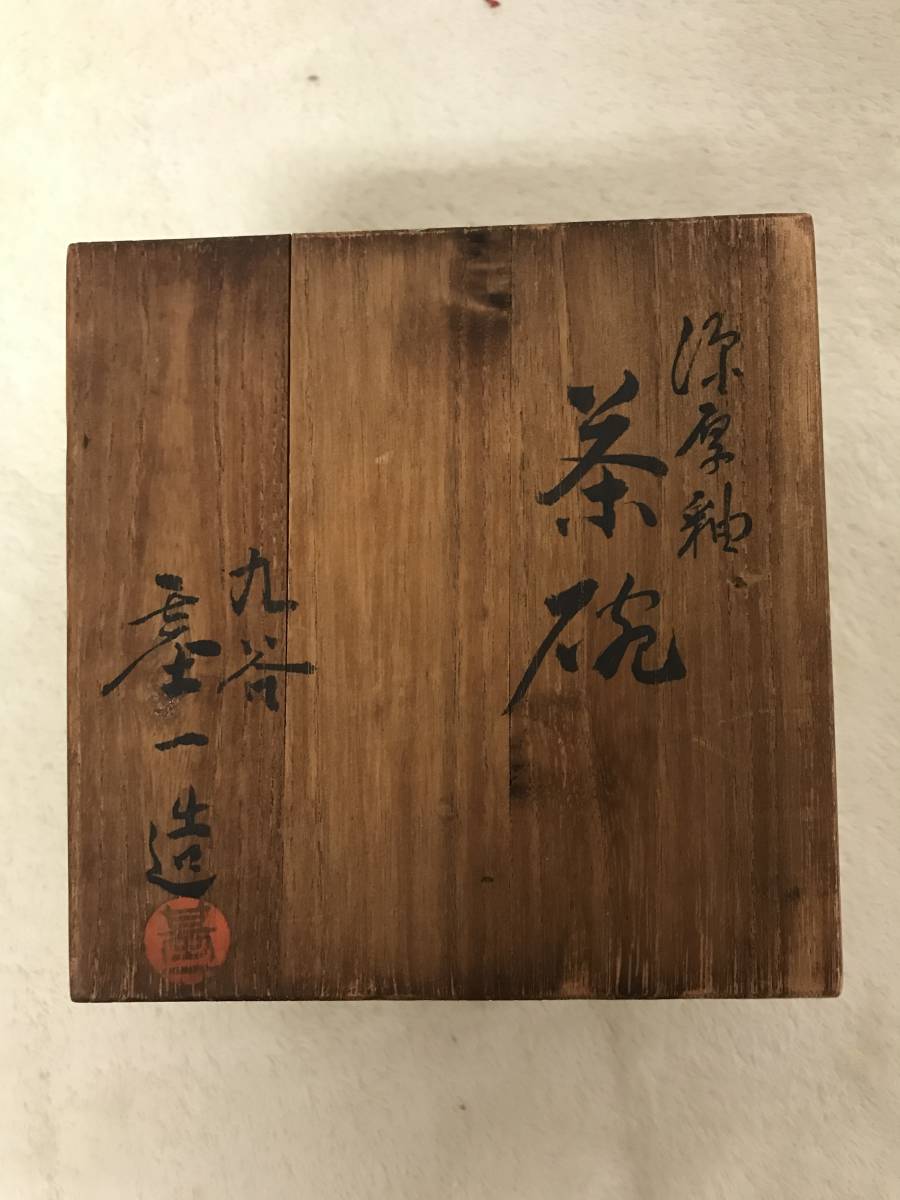 深厚釉
茶碗
九谷
一造